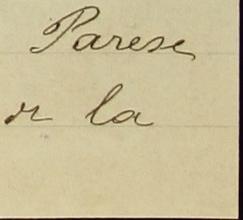 Parese
r la